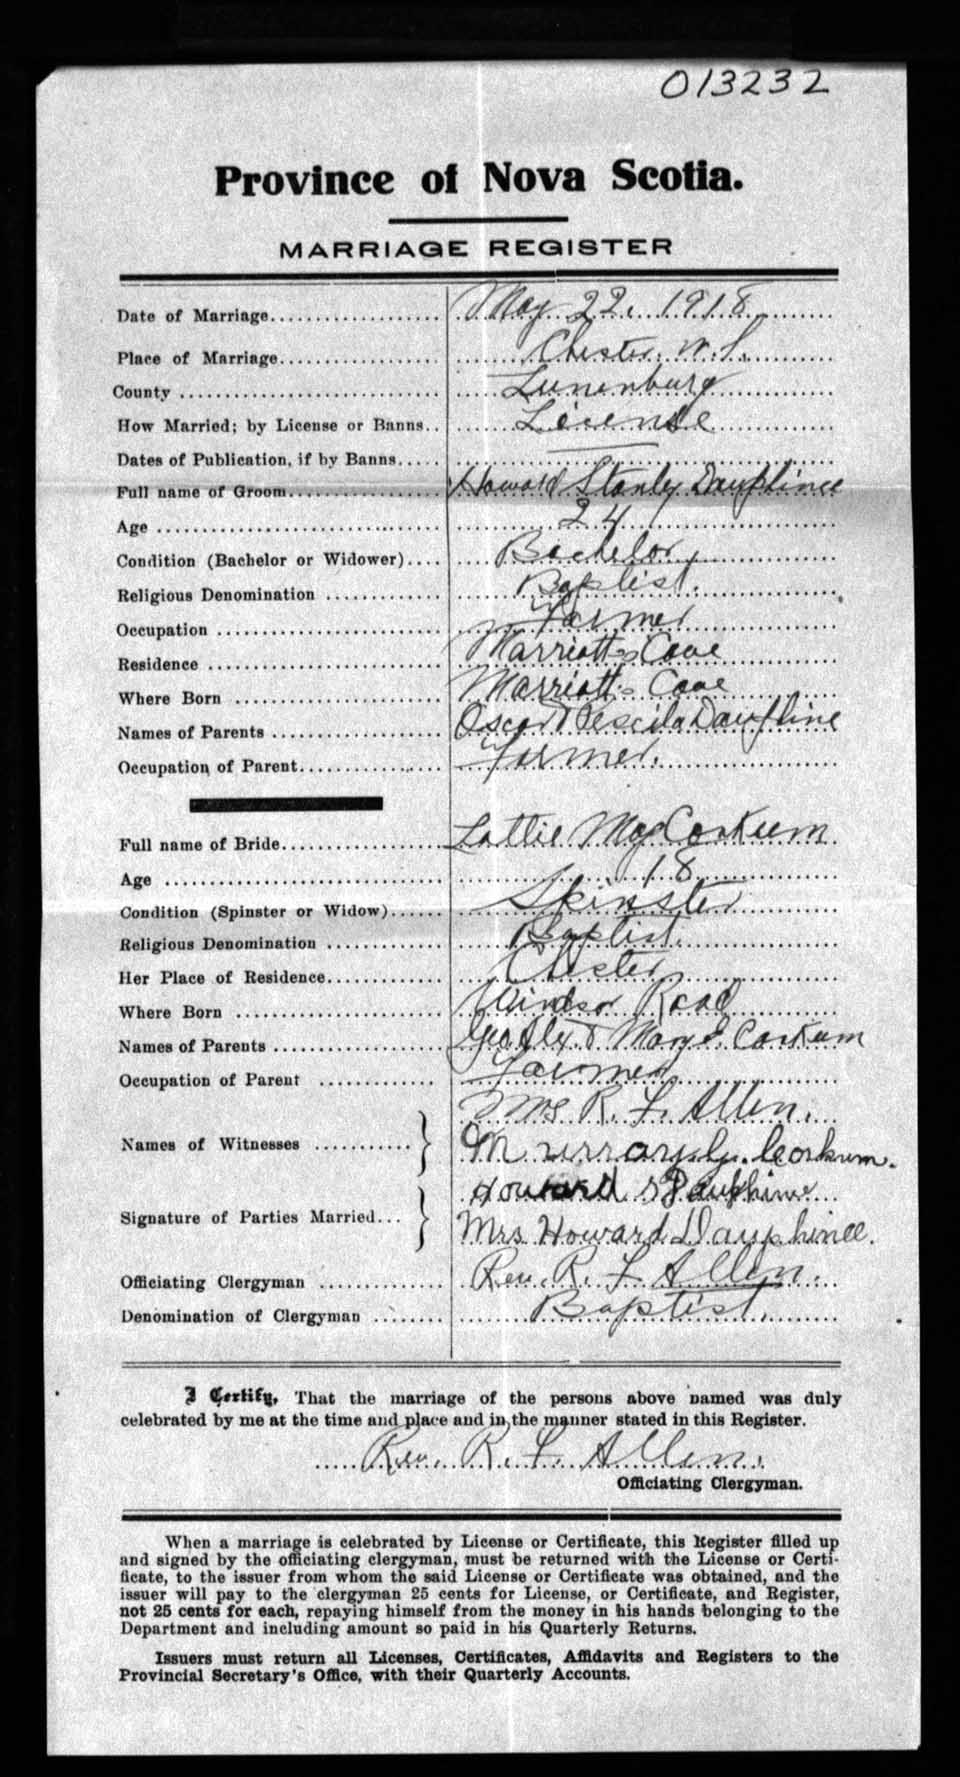 013232
Province of Nova Scotia.
MARRIAGE REGISTER
Date of Marriage.................... May 22, 1918
Place of Marriage................... Chester. N.S.
County ............................. Lunenburg
How Married; by License or Banns.. License
Dates of Publication, if by Banns..... ———
Full name of Groom................... Howard Stanly Dauphinee
Age ................................ 24
Condition (Bachelor or Widower).... Bachelor
Religious Denomination ............. Baptist.
Occupation ......................... Farmer
Residence .......................... Marriotts Cove
Where Born ......................... Marriotts Cove
Names of Parents ................... Oscar & Pescila Dauphine
Occupation of Parent................ Farmer.
Full name of Bride.................. Lottie May Corkum
Age ................................ 18
Condition (Spinster or Widow)...... Spinster
Religious Denomination ............. Baptist.
Her Place of Residence............. Chester
Where Born ......................... Windsor Road
Names of Parents ................... Geo & Mary Corkum
Occupation of Parent ............. Farmer
Mrs R. F. Allen.
Names of Witnesses ...........
Murray Corkum.
Howard S Dauphine
Signature of Parties Married...
Mrs Howard Dauphinee.
Officiating Clergyman ............. Rev. R. F. Allen.
Denomination of Clergyman ........ Baptist.
I Certify, That the marriage of the persons above named was duly
celebrated by me at the time and place and in the manner stated in this Register.
Rev. R. F. Allen.
Officiating Clergyman.
When a marriage is celebrated by License or Certificate, this Register filled up
and signed by the officiating clergyman, must be returned with the License or Certi-
ficate, to the issuer from whom the said License or Certificate was obtained, and the
issuer will pay to the clergyman 25 cents for License, or Certificate, and Register,
not 25 cents for each, repaying himself from the money in his hands belonging to the
Department and including amount so paid in his Quarterly Returns.
Issuers must return all Licenses, Certificates, Affidavits and Registers to the
Provincial Secretary's Office, with their Quarterly Accounts.